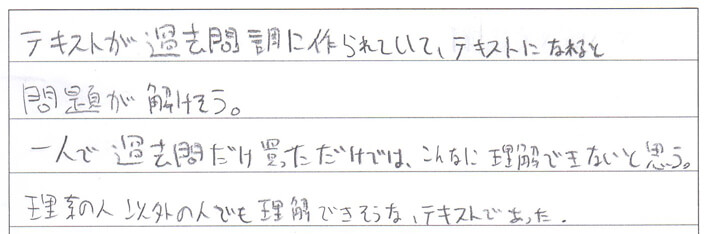 テキストが過去問調に作られていて、テキストになれると
問題が解けそう。
一人で過去問だけ買っただけでは、こんなに理解できないと思う。
理系の人以外の人でも理解できそうな、テキストであった.